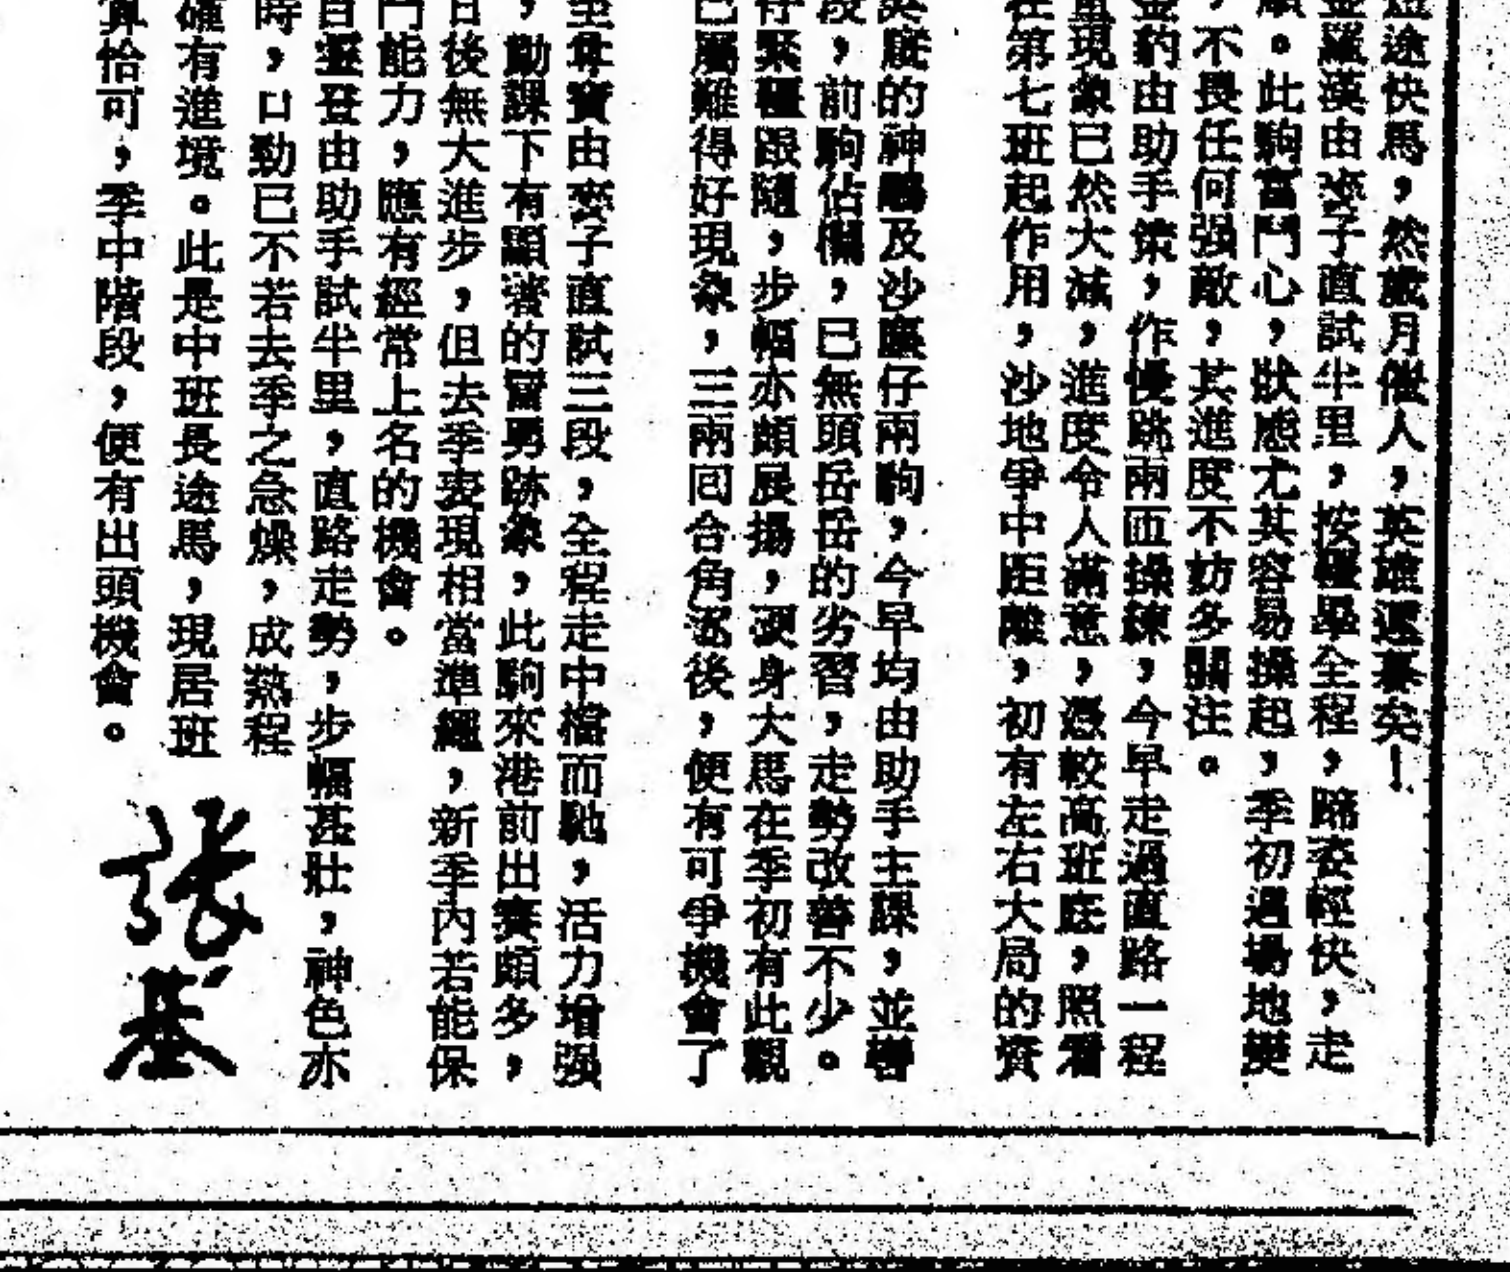 途快馬，然歲月催人，英雄遲暮矣！
金羅漢由麥子直試半里，按韁畢全程，蹄姿輕快，走
順。此駒富鬥心，狀態尤其容易操起，季初過場地變
，不畏任何强敵，其進度不妨多關注。
金豹由助手策，作慢跳兩匝操練，今早走過直路一程
重現象已然大減，進度令人滿意，憑較高班底，照看
在第七班起作用，沙地爭中距離，初有左右大局的資
英度的神鵰及沙塵仔兩駒，今早均由助手主課，並轡
段，前駒佔欄，已無頭岳岳的劣習，走勢改善不少。
仔緊韁跟隨，步幅亦頗展揚，硬身大馬在季初有此觀
已屬難得好現象，三兩囘合角逐後，便有可爭機會了
至尊寶由麥子直試三段，全程走中檔而馳，活力增强
，勤課下有顯著的奮勇跡象，此駒來港前出賽頗多，
日後無大進步，但去季表現相當準繩，新季內若能保
鬥能力，應有經常上名的機會。
由助手試半里，直路走勢，步幅甚壯，神色亦
時，口勁已不若去季之急燥，成熟程
確有進境。此是中班長途馬，現居班
算恰可，季中階段，便有出頭機會。
張基